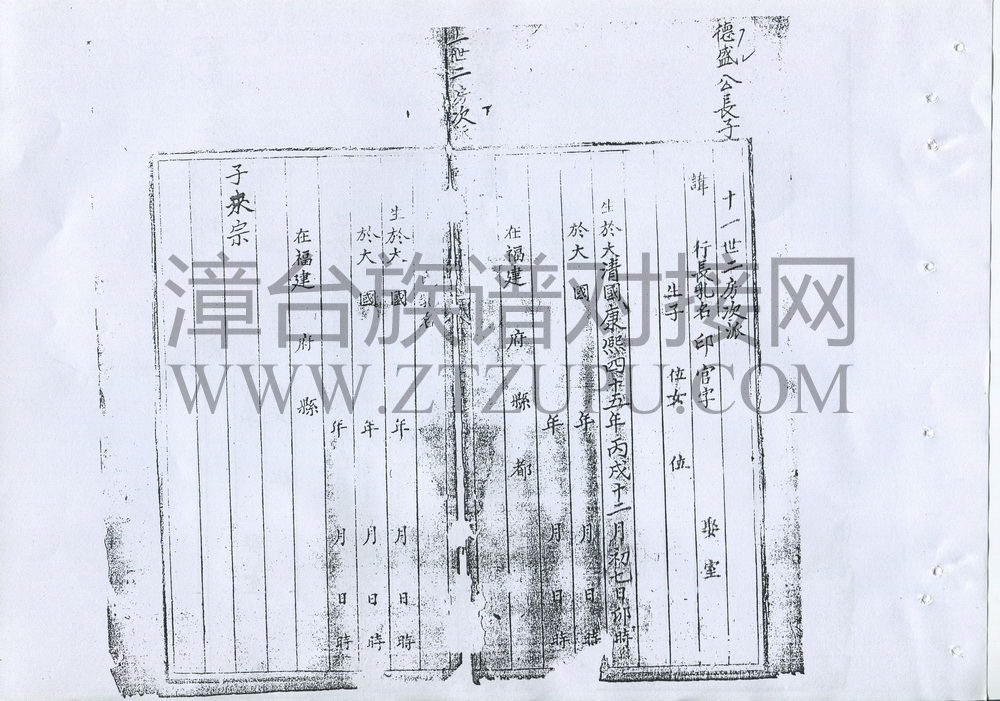 德盛公長子
十一世二房次派
諱
行長乳名 印 官字 娶室
生子 位女 位
生於大清國康熙四十五年丙戌十二月初七日卯時
於大 國 年 月 日 時
年 月 日 時
在福建 府 縣 都
世二房次派
乳名
生於大 國 年 月 日 時
於大 國 年 月 日 時
年 月 日 時
在福建 府 縣
子 宗
漳台族谱对接网
WWW.ZTZUPU.COM